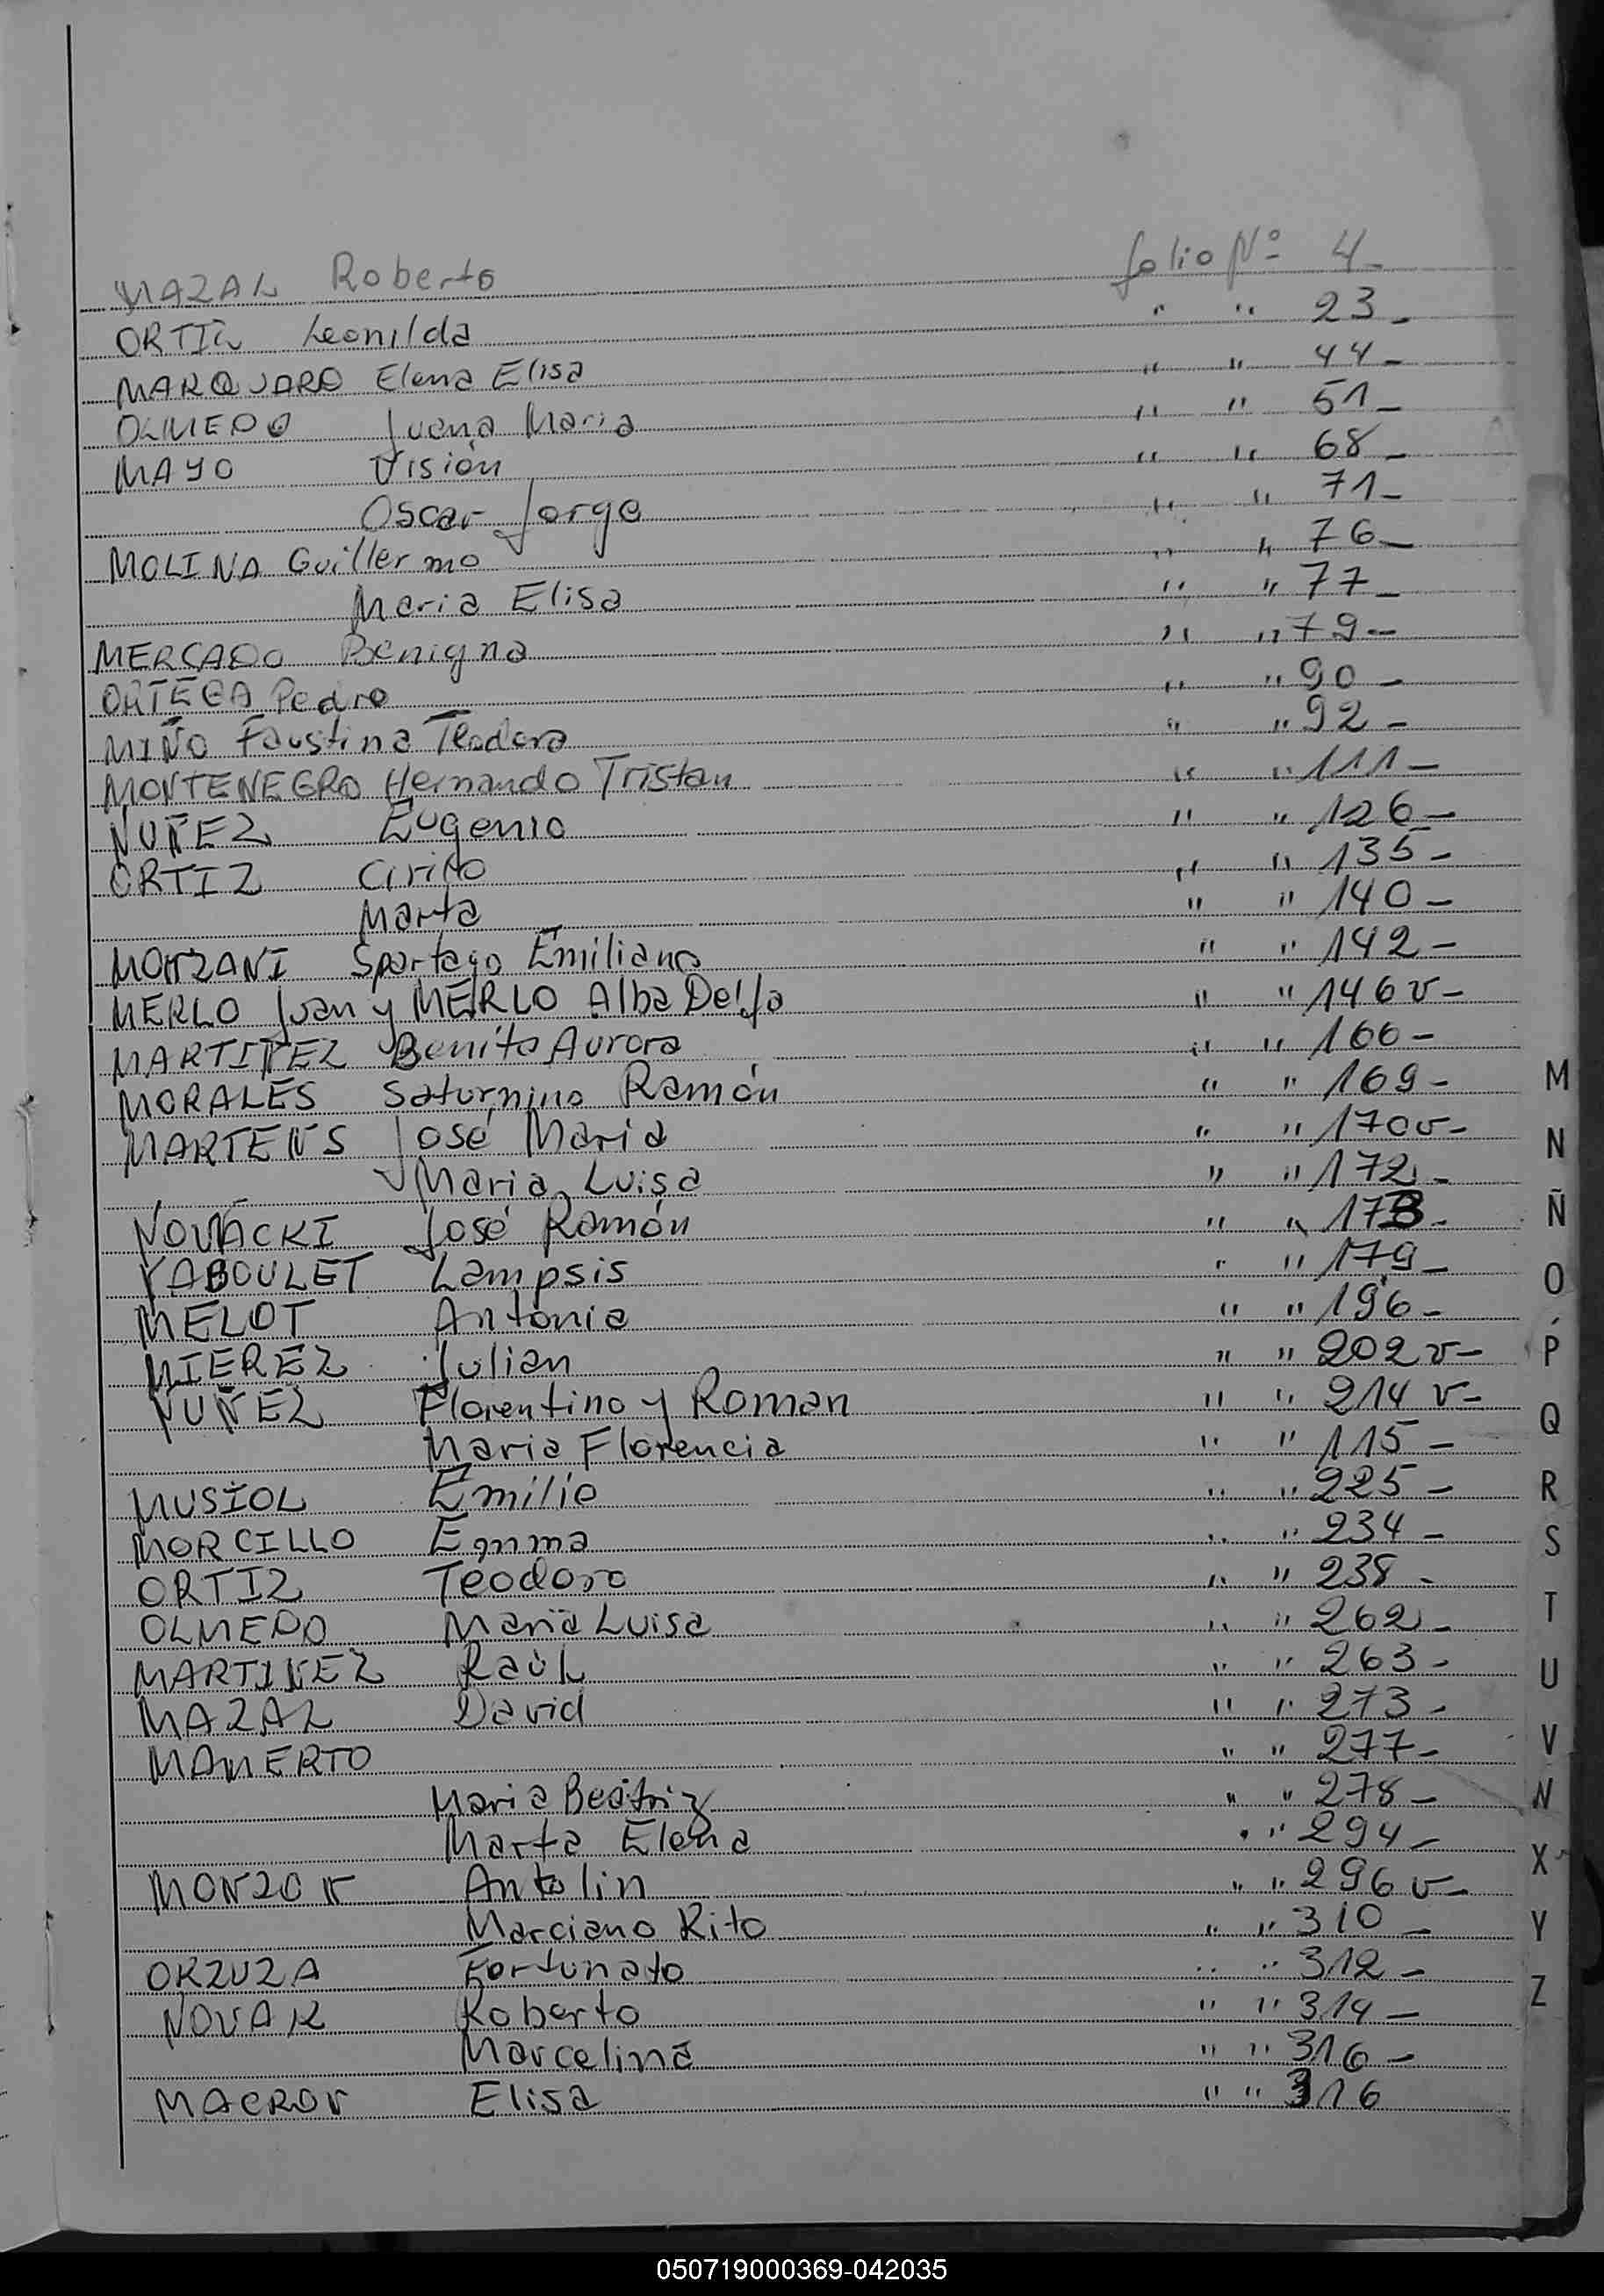 MAZAL Roberto folio Nº 4-
ORTIZ Leonilda " " 23-
MARQUARD Elena Elisa " " 44-
OLMEDO Juana Maria " " 51-
MAYO Visión " " 68-
Oscar Jorge " " 71-
MOLINA Guillermo " " 76-
Maria Elisa " " 77-
MERCADO Benigna " " 79-
ORTEGA Pedro " " 90-
MIÑO Faustina Teodora " " 92-
MONTENEGRO Hernando Tristan " " 111-
NUÑEZ Eugenio " " 126-
ORTIZ Cirilo " " 135-
Marta " " 140-
MONZANI Spartago Emiliano " " 142-
MERLO Juan y MERLO Alba Delfa " " 146 v-
MARTINEZ Benita Aurora " " 166-
MORALES Saturnino Ramón " " 169-
MARTENS José Maria " " 170v-
Maria Luisa " " 172-
NOVACKI José Ramón " " 173-
YABOULET Lampsis " " 179-
MELOT Antonia " " 196-
MIEREZ Julian " " 202 v-
NUÑEZ Florentino y Roman " " 214 v-
Maria Florencia " " 115-
MUSIOL Emilio " " 225-
MORCILLO Emma " " 234-
ORTIZ Teodoro " " 238-
OLMEDO Maria Luisa " " 262-
MARTINEZ Raúl " " 263-
MAZAL David " " 273-
MAMERTO " " 277-
Maria Beatriz " " 278-
Marta Elena " " 294-
MONZON Antolin " " 296 v-
Marciano Rito " " 310-
ORZUZA Fortunato " " 312-
NOVAK Roberto " " 314-
Marcelina " " 316-
MACROV Elisa " " 316
M
N
Ñ
O
P
Q
R
S
T
U
V
X
Y
Z
050719000369-042035